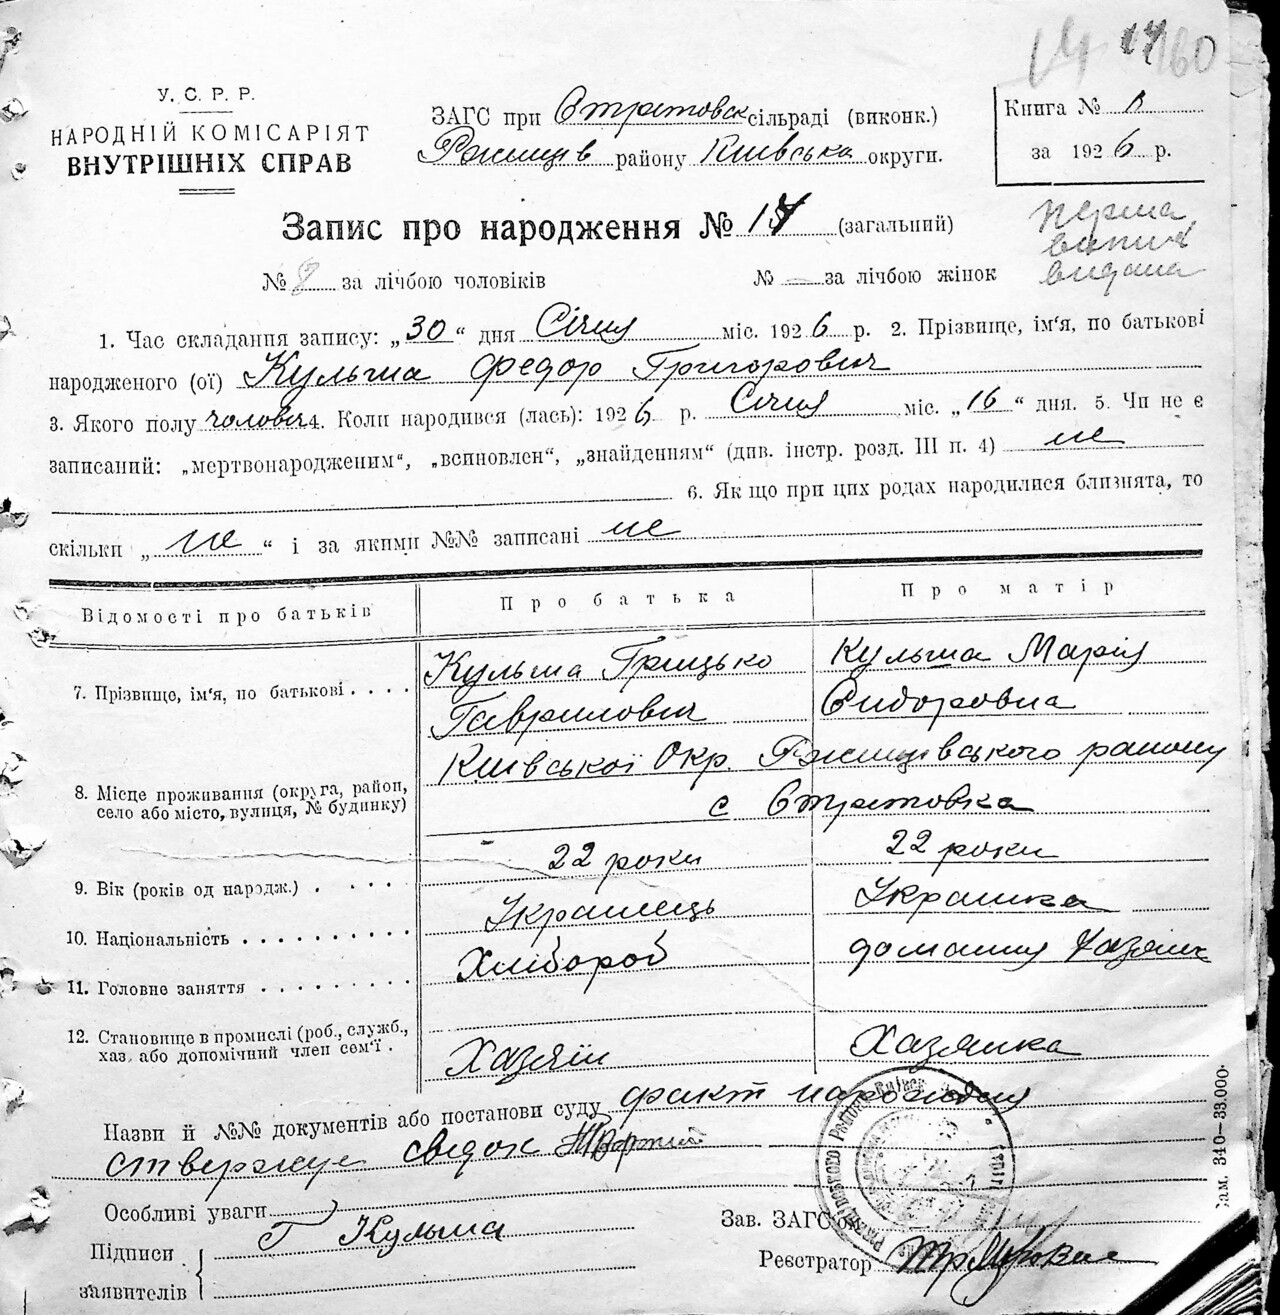 14 14 160
У. С. Р. Р.
НАРОДНІЙ КОМІСАРІЯТ
ВНУТРІШНІХ СПРАВ
ЗАГС при Стритовск сільраді (виконк.)
Ржищів району Київська округи.
Книга №
за 1926 р.
Запис про народження № 14 (загальний)
№ 8 за лічбою чоловіків № — за лічбою жінок
перша
випис
видана
1. Час складання запису: „30“ дня Січня міс. 1926 р. 2. Прізвище, ім'я, по батькові
народженого (ої) Кульша Федор Григорович
3. Якого полу чоловіч 4. Коли народився (лась): 1926 р. Січня міс. „16“ дня. 5. Чи не є
записаний: „мертвонародженим“, „всиновлен“, „знайденням“ (див. інстр. розд. III п. 4) не
6. Як що при цих родах народилися близнята, то
скільки „не“ і за якими №№ записані не
Відомості про батьків Про батька Про матір
7. Прізвище, ім'я, по батькові . . . . Кульша Грицько Кульша Марія
Гаврилович Сидоровна
8. Місце проживання (округа, район, село або місто, вулиця, № будинку) Київської Окр. Ржищівського району
с Стритовка
9. Вік (років од народж.) . . . 22 роки 22 роки
10. Національність . . . . . . . . . . Українець Українка
11. Головне заняття . . . . . . . . . Хлібороб домашня хазяйк
12. Становище в промислі (роб., служб., хаз. або допомічний член сем'ї . Хазяїн Хазяйка
Назви й №№ документів або постанови суду факт народження
ствержує свідок
Особливі уваги
Підписи заявителів Г Кульша
Зав. ЗАГС'ом
Реєстратор
Зам. 340—33.000.